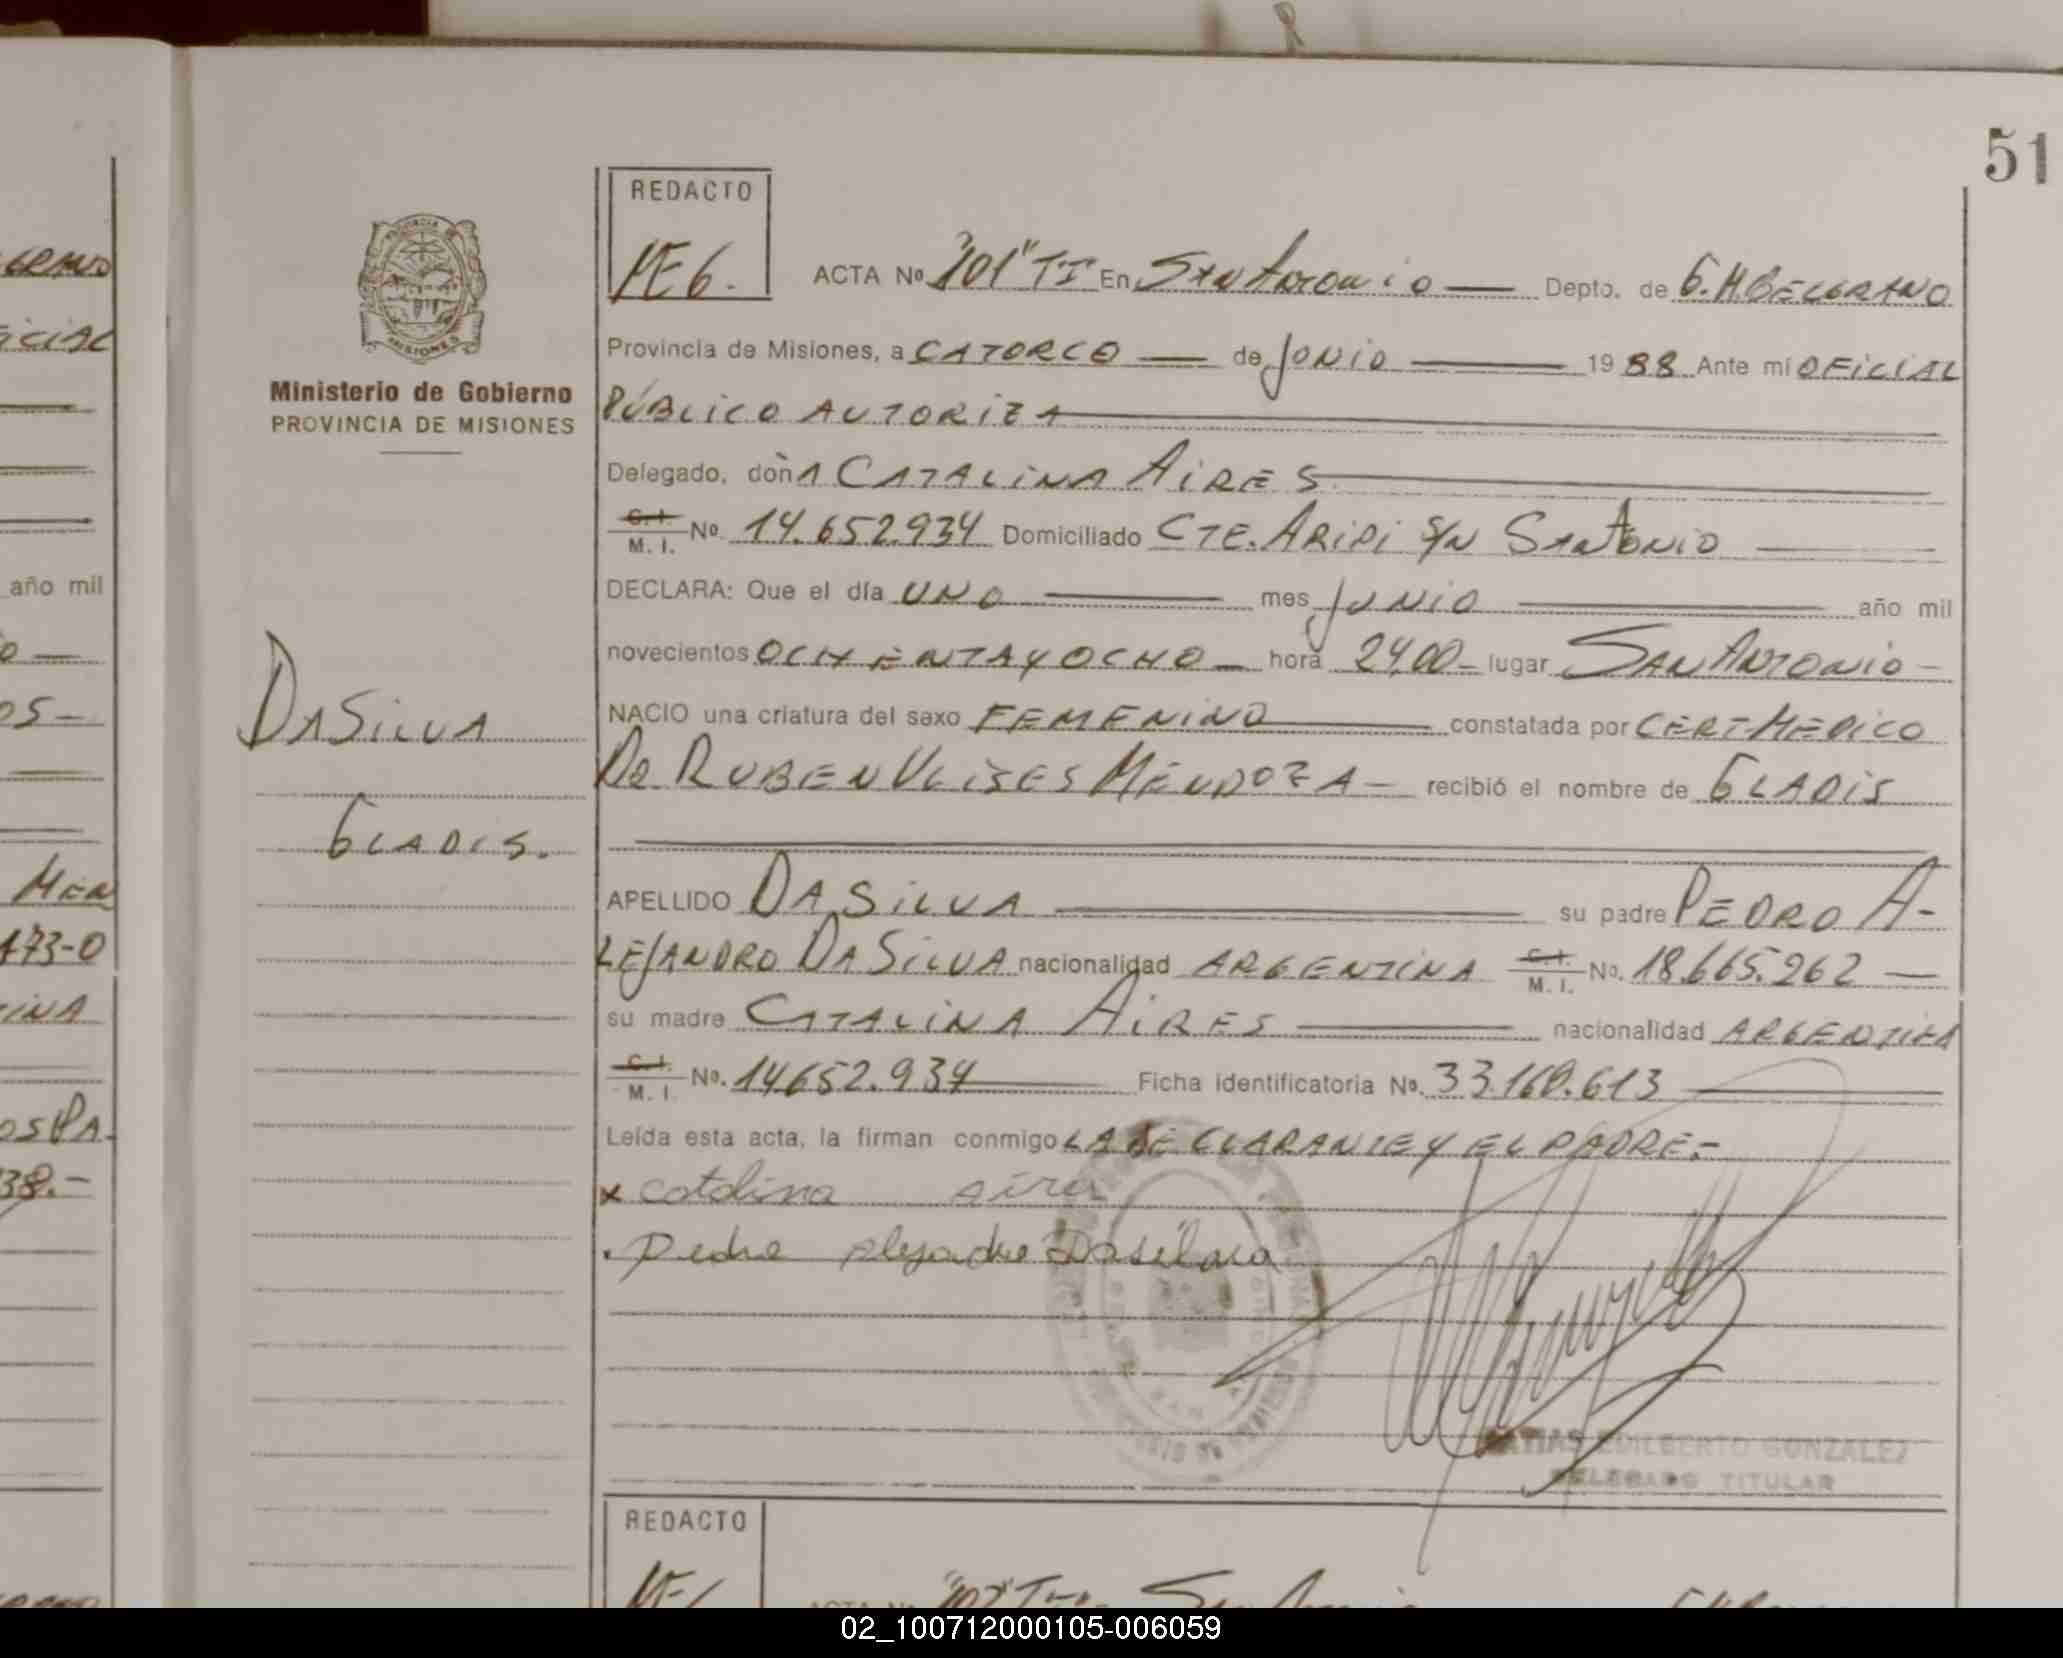 51
REDACTO
MEG.
ACTA No. "101" TI En San Antonio Depto. de G. M. BELGRANO
Provincia de Misiones, a CATORCE de JUNIO 1988 Ante mí OFICIAL
PÚBLICO AUTORIZA
Delegado, doña CATALINA AIRES
C. I.
M. I. No. 14.652.934 Domiciliado CTE. ARIPI S/N SAN ANTONIO
DECLARA: Que el día UNO mes JUNIO año mil
novecientos OCHENTA Y OCHO hora 24,00 lugar SAN ANTONIO
NACIO una criatura del sexo FEMENINO constatada por CERT MEDICO
DR RUBEN ULISES MENDOZA recibió el nombre de GLADIS
APELLIDO DA SILVA su padre PEDRO A-
LEJANDRO DA SILVA nacionalidad ARGENTINA C. I. M. I. No. 18.665.262
su madre CATALINA AIRES nacionalidad ARGENTINA
C. I.
M. I. No. 14652.934 Ficha identificatoria No. 33.160.613
Leída esta acta, la firman conmigo LA DECLARANTE Y EL PADRE.-
x catalina aires
. Pedro alejandro Dasilva
MATIAS EDILBERTO GONZALEZ
DELEGADO TITULAR
PROVINCIA DE
MISIONES
Ministerio de Gobierno
PROVINCIA DE MISIONES
DA SILVA
GLADIS.
REDACTO
GRANO
FICIAL
año mil
OS-
MEN
173-0
TINA
OS PA-
38.-
02_100712000105-006059